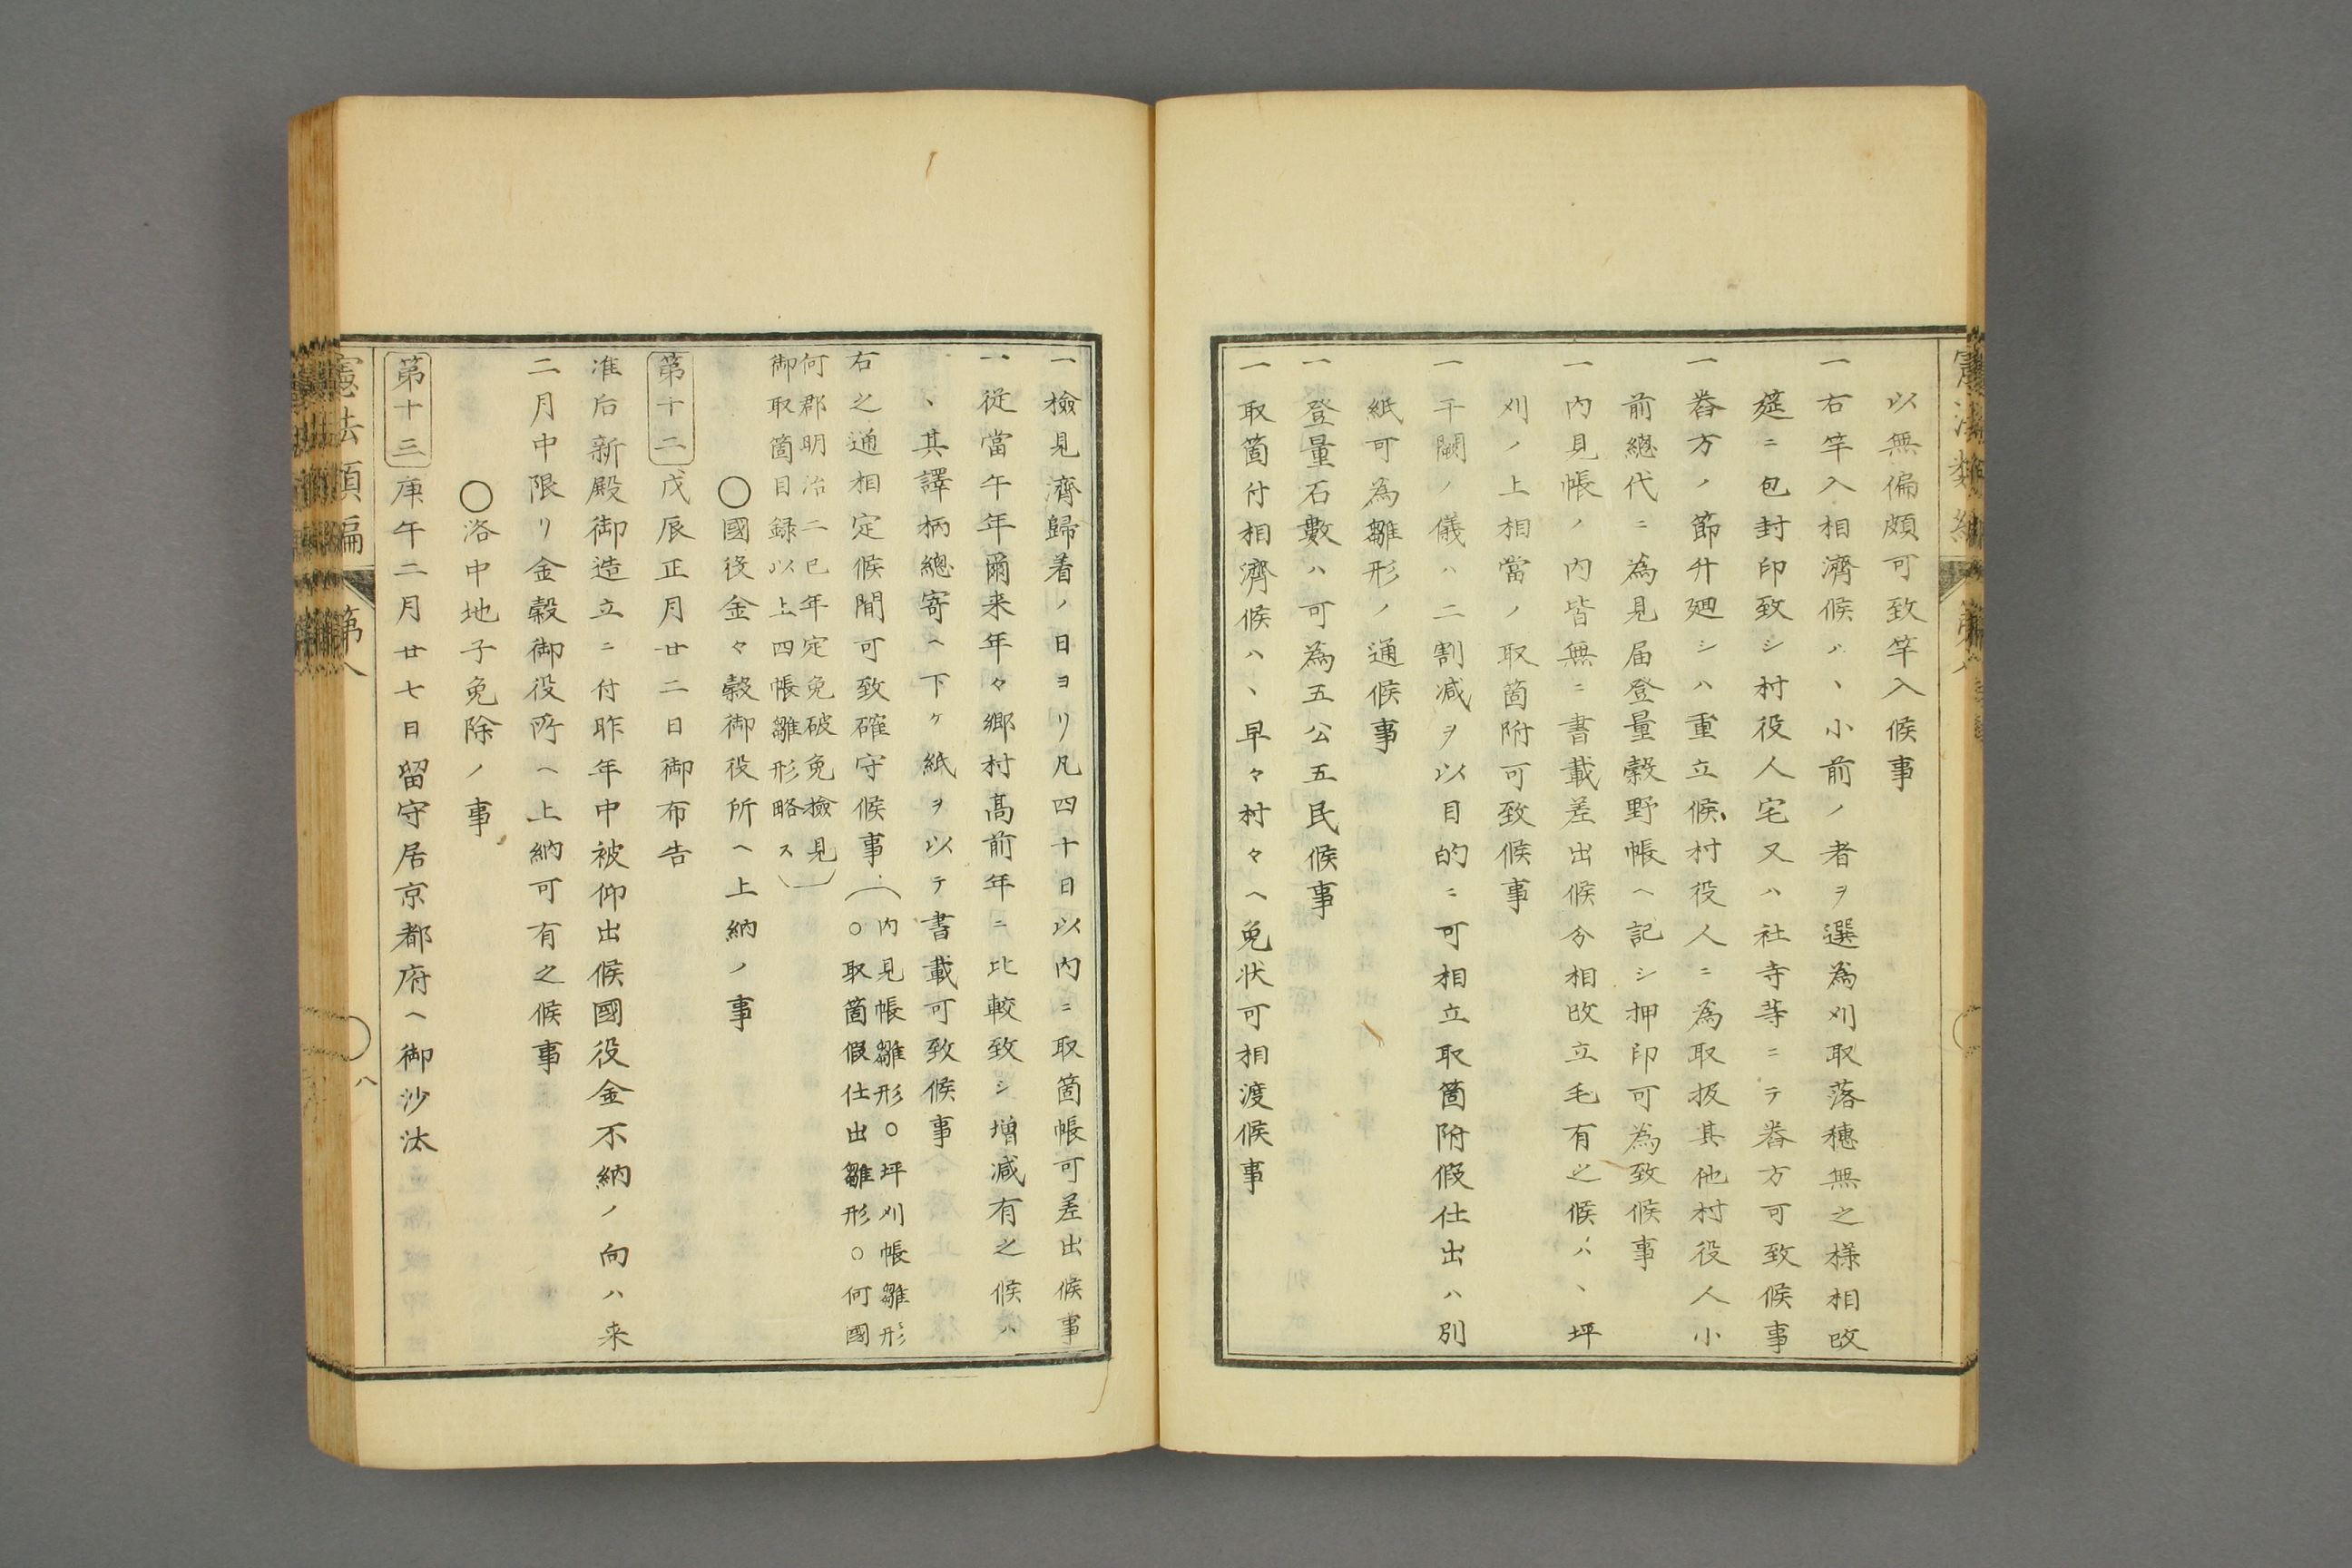 以無偏頗可致竿入候事
一右竿入相濟候ハヽ小前ノ者ヲ選為刈取落穗無之様相改
筵ニ包封印致シ村役人宅又ハ社寺等ニテ舂方可致候事
一舂方ノ節升廻シハ重立候村役人ニ為取扱其他村役人小
前總代ニ為見届登量穀野帳ヘ記シ押印可為致候事
一内見帳ノ内皆無ニ書載差出候分相改立毛有之候ハヽ坪
刈ノ上相當ノ取箇附可致候事
一干闕ノ儀ハ二割減ヲ以目的ニ可相立取箇附假仕出ハ別
紙可為雛形ノ通候事
一登量石數ハ可為五公五民候事
一取箇付相濟候ハヽ早々村々ヘ免状可相渡候事
一檢見濟歸着ノ日ヨリ凡四十日以内ニ取箇帳可差出候事
一從當午年爾来年々郷村髙前年ニ比較致シ増減有之候ハ
ヽ其譯柄總寄ヘ下ケ紙ヲ以テ書載可致候事
右之通相定候間可致確守候事
内見帳雛形○坪刈帳雛形
○取箇假仕出雛形○何國
何郡明治二巳年定免破免檢見
御取箇目録以上四帳雛形略ス
○國役金々穀御役所ヘ上納ノ事
第十二 戊辰正月廿二日御布告
准后新殿御造立ニ付昨年中被仰出候國役金不納ノ向ハ来
二月中限リ金穀御役所ヘ上納可有之候事
○洛中地子免除ノ事
第十三 庚午二月廿七日留守居京都府ヘ御沙汰
憲法類編 第八
八